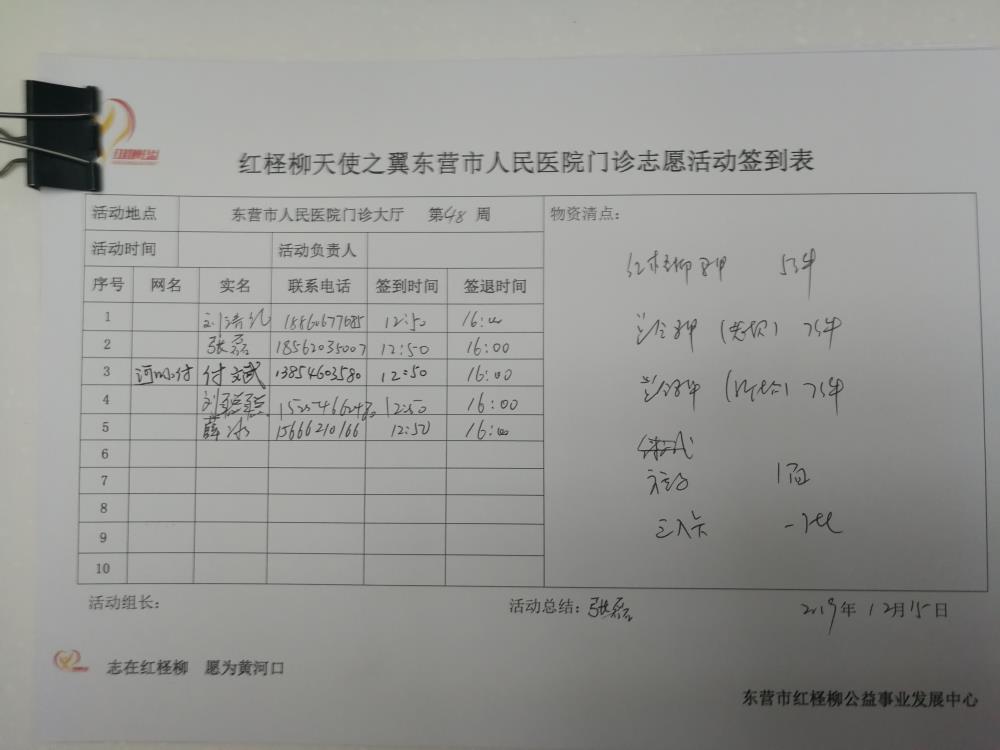 红柽柳公益
红柽柳天使之翼东营市人民医院门诊志愿活动签到表
活动地点 东营市人民医院门诊大厅 第48周
物资清点:
活动时间 活动负责人
序号 网名 实名 联系电话 签到时间 签退时间
1 18860677685 12:50 16:00
2 张磊 18562035007 12:50 16:00
3 付文武 13854603580 12:50 16:00
4 12:50 16:00
5 薛冰 15666210166 12:50 16:00
6
7
8
9
10
红柽柳 5件
7件
7件
1面
活动组长:
活动总结:张磊
2019年12月15日
志在红柽柳 愿为黄河口
东营市红柽柳公益事业发展中心